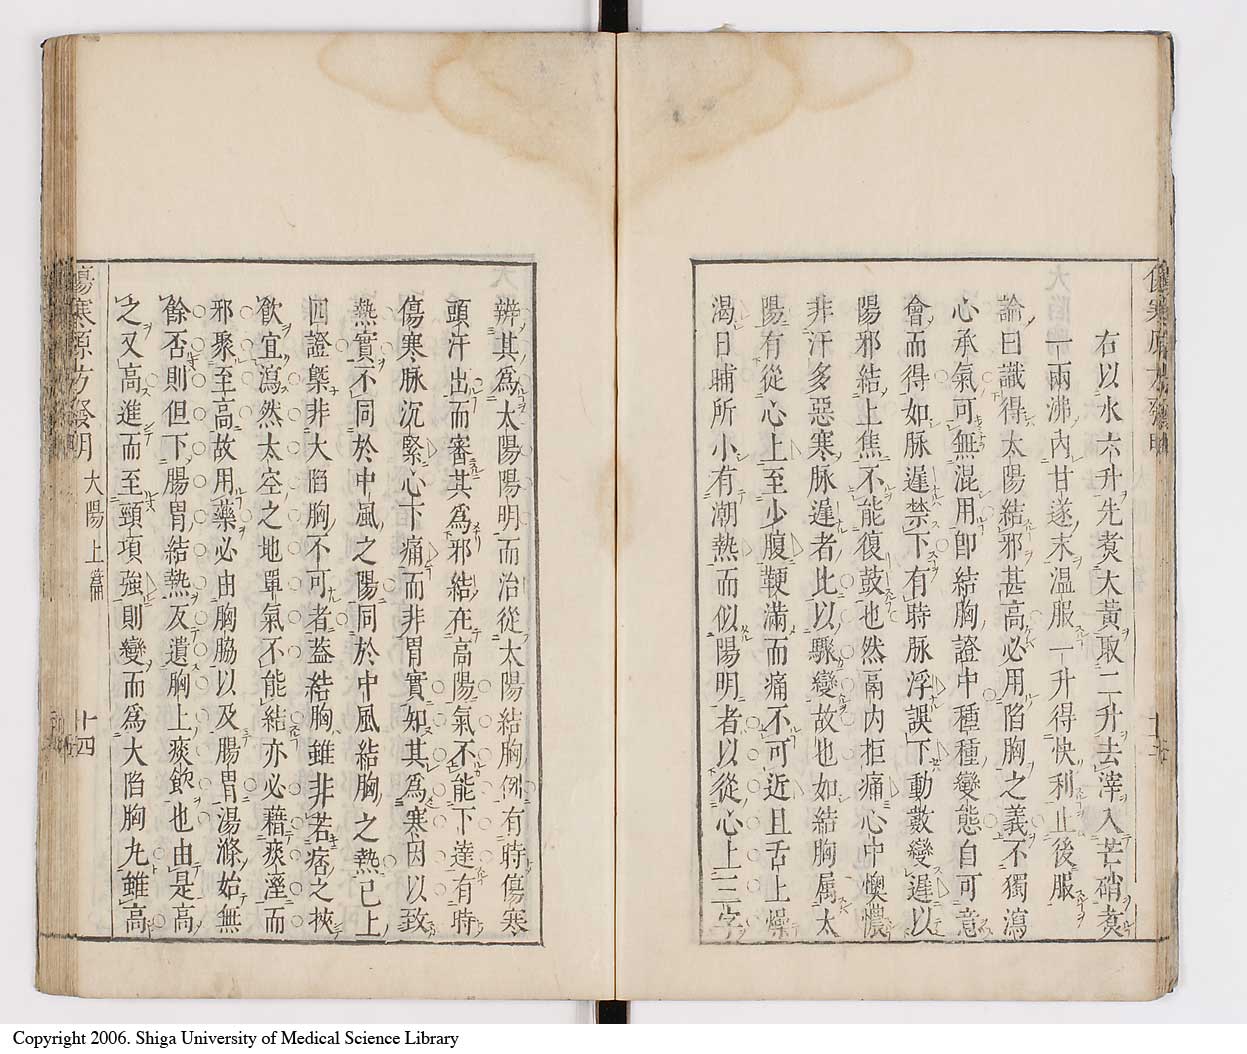 右以水六升先煮大黃取二升去滓入芒硝煮
一兩沸內甘遂末溫服一升得快利止後服
論曰識得太陽結邪甚高必用陷胸之義不獨瀉
心承氣可無混用卽結胸證中種種變態自可意
會而得如脉遲禁下有時脉浮誤下動數變遲以
陽邪結上焦不能復鼓也然鬲内拒痛心中懊憹
非汗多惡寒脉遲者比以驟變故也如結胸属太
陽有從心上至少腹鞕滿而痛不可近且舌上燥
渴日晡所小有潮熱而似陽明者以從心上三字
辨其爲太陽陽明而治從太陽結胸例有時傷寒
頭汗出而審其爲邪結在高陽氣不能下達有時
傷寒脉沉緊心下痛而非胃實知其爲寒因以致
熱實不同於中風之陽同於中風結胸之熱已上
四證槩非大陷胸不可者葢結胸雖非若痞之挾
飮宜瀉然太空之地單氣不能結亦必藉痰溼而
邪聚至高故用藥必由胸脇以及腸胃湯滌始無
餘否則但下腸胃結熱反遺胸上痰飮也由是高
之又高進而至頸項強則變而爲大陷胸丸雖高
傷寒原方發明
大陽上篇
十四
Copyright 2006. Shiga University of Medical Science Library